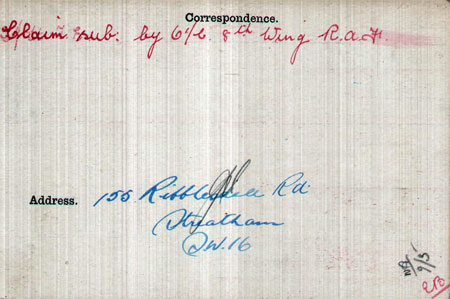 Correspondence.
Claim sub. by O/C 8th Wing R.A.F.
Address. 155 Ribblesdale Rd.
Streatham
S.W.16